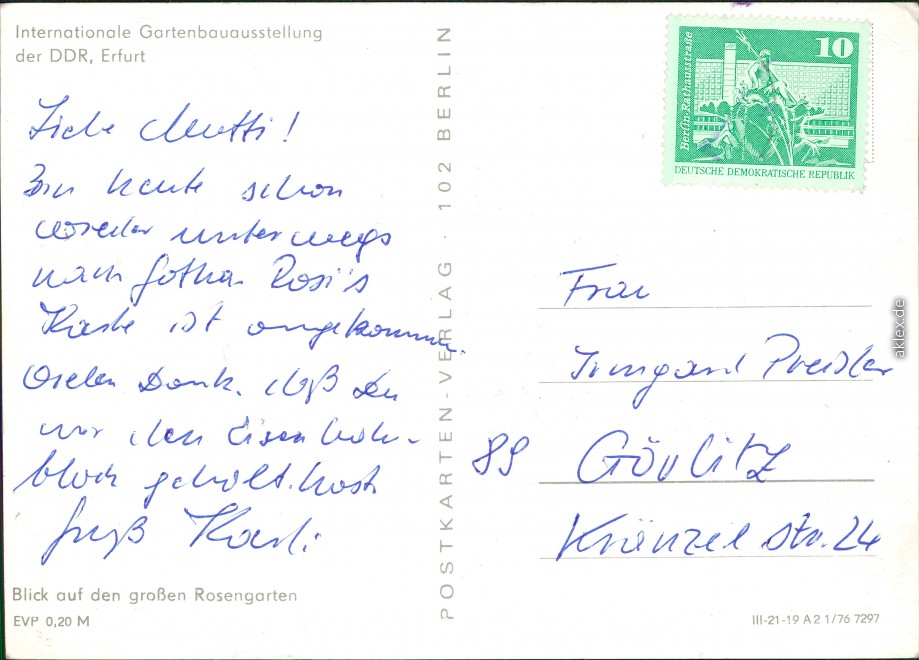 Internationale Gartenbauausstellung
der DDR, Erfurt
Liebe Mutti!
Bin heute schon
wieder unterwegs
nach Gotha. Rosi's
Karte ist angekommen.
Vielen Dank, daß Du
mir den Eisenbahn-
block geholt hast.
Gruß Karli
Blick auf den großen Rosengarten
EVP 0,20 M
POSTKARTEN-VERLAG · 102 BERLIN
10
Berlin-Rathausstraße
DEUTSCHE DEMOKRATISCHE REPUBLIK
Frau
Irmgard Preisler
89 Görlitz
Kränzel Str. 24
III-21-19 A 2 1/76 7297
aklex.de